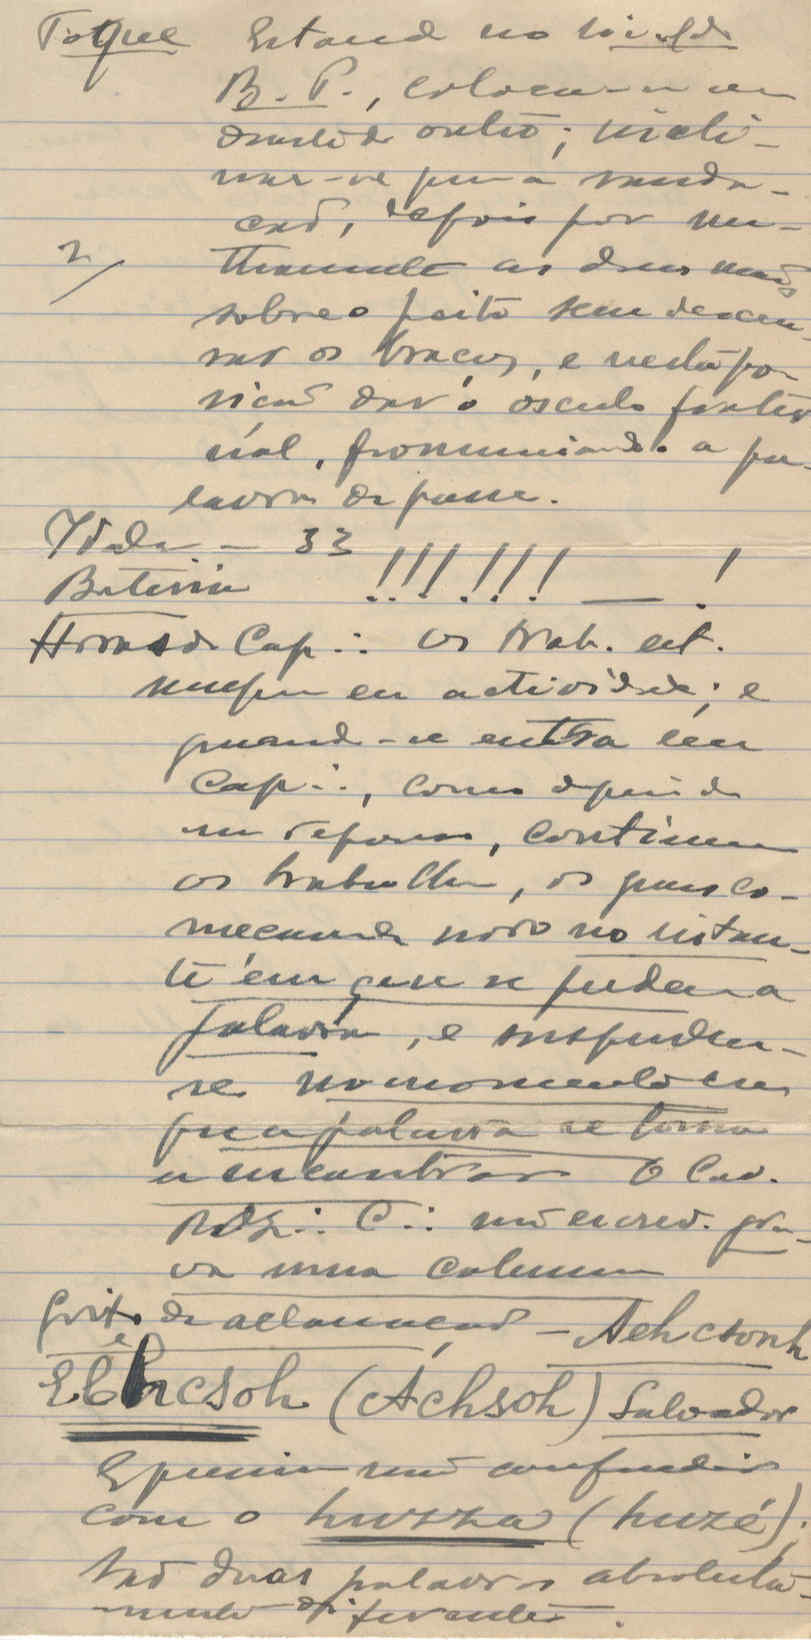 Toque Estando no sinal de
B. P., colocar-se um
diante do outro; incli-
nar-se para a sauda-
ção, depois por mu-
2/ tuamente as duas mãos
sobre o peito sem descru-
zar os braços, e nesta po-
sição dar o osculo frater
nal, pronunciando a pa-
lavra de passe.
Idade — 33
Bateria !!! !!! — !
Horas de Cap∴ Os trab. est.
sempre em actividade; e
quando-se entra em
Cap∴, como depois de
um repouso, continuam
os trabalhos, os quaes co-
meçam de novo no instan-
te em que se perdeu a
palavra, e suspendem-
se no momento em
que a palavra se torna
a encontrar O Cav.
R∴ C∴ não escrev. gra-
va uma columna
Grito de acclamação — Achcsonh
Elhcsoh (Áchsoh) Salvador
É preciso não confundir
com o huzza (huzé);
são duas palavras absoluta-
mente differentes.